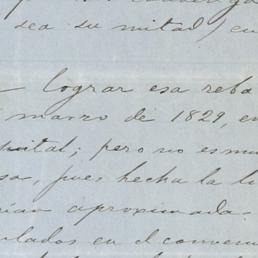 sea su mitad) en
lograr esa reba
marzo de 1829, en
pital; pero no es mu
sa, pues hecha la li
aproximada.
lados en el conveni